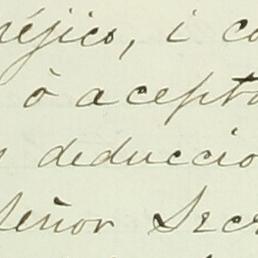 éjico, i co
ò acepta
deduccio
señor Secr